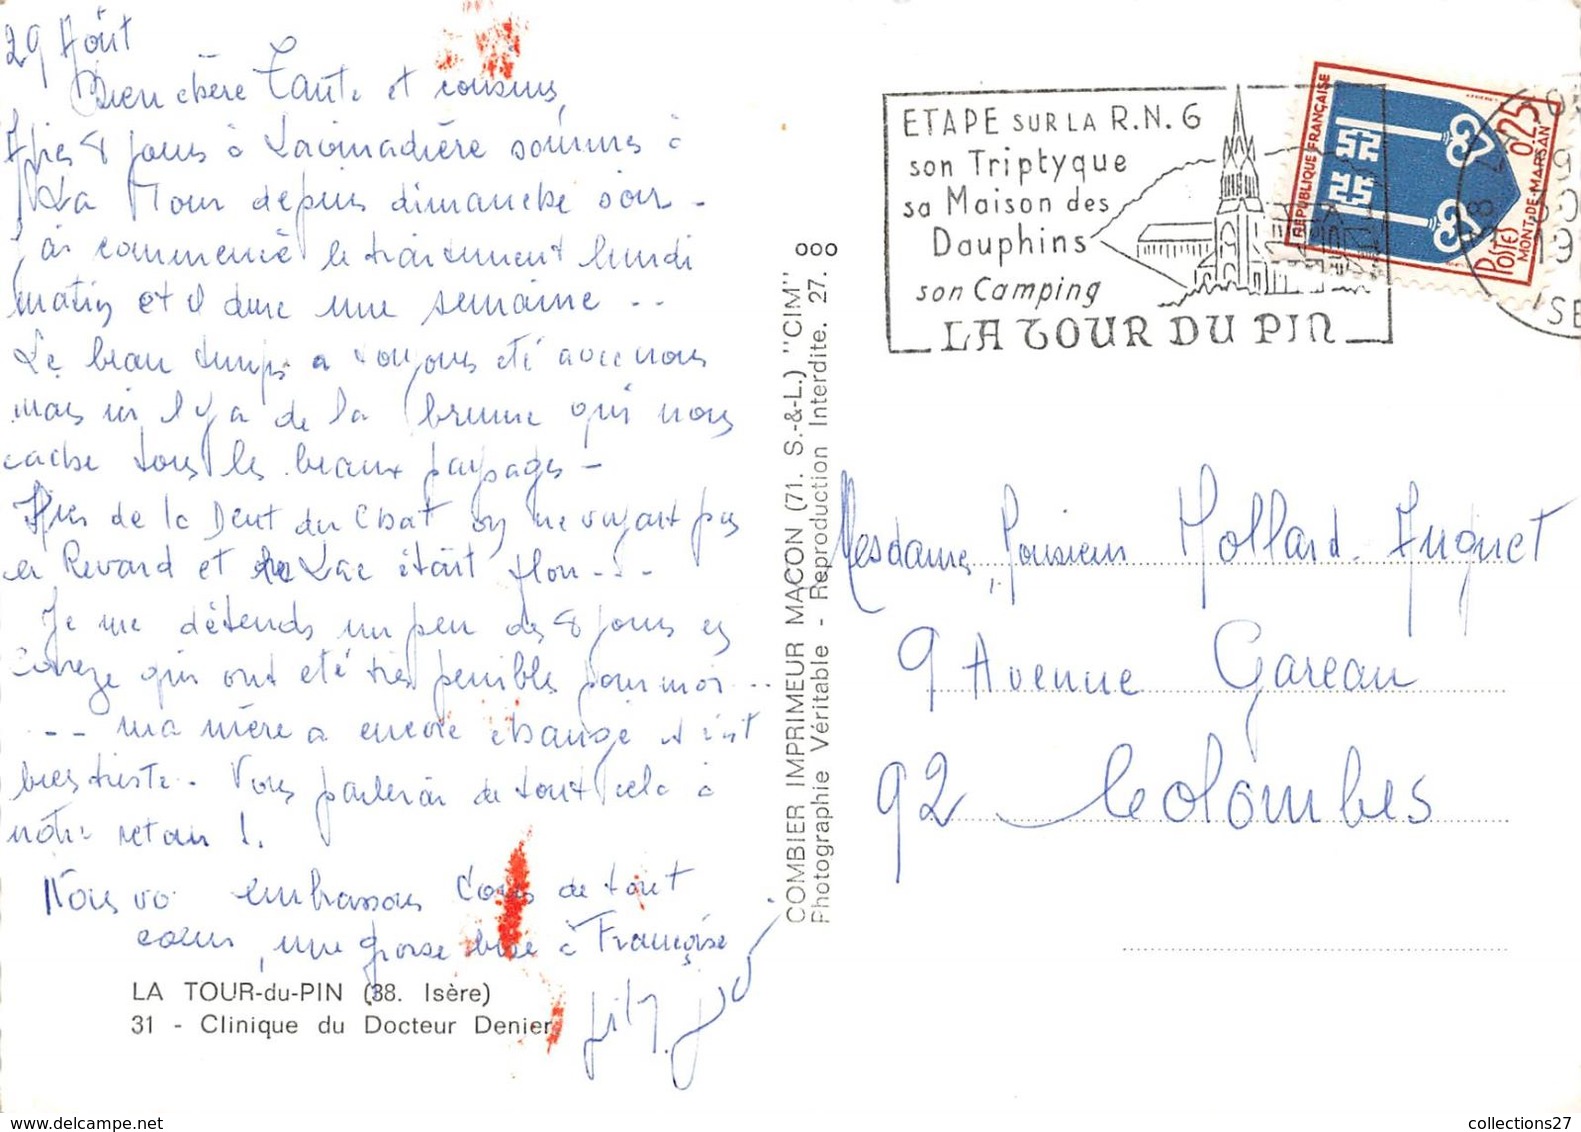 29 Août
Bien chère Tante et cousins,
Après 8 jours à Lavinadière sommes à
La Tour depuis dimanche soir -
J'ai commencé le traitement lundi
matin et il dure une semaine ..
Le beau temps a toujours été avec nous
mais ici il y a de la brume qui nous
cache tous les beaux paysages -
Près de la Dent du Chat on ne voyait pas
le Revard et le Lac était flou - - -
Je me détends un peu des 8 jours en
Corrèze qui ont été très pénibles pour moi ..
-- ma mère a encore changé et c'est
bien triste - Vous parlerai de tout cela à
notre retour !.
Nous vo embrassons tous de tout
cœur, une grosse bise à Françoise
LA TOUR-du-PIN (38. Isère)
31 - Clinique du Docteur Denier
COMBIER IMPRIMEUR MACON (71. S.-&-L.) "CIM"
Photographie Véritable - Reproduction Interdite. 27.
ETAPE SUR LA R.N. 6
son Triptyque
sa Maison des
Dauphins
son Camping
LA TOUR DU PIN
REPUBLIQUE FRANÇAISE
0,25
POSTES
MONT-DE-MARSAN
38
Mesdames, Monsieur Mollard-Huguet
9 Avenue Gareau
92 Colombes
collections27